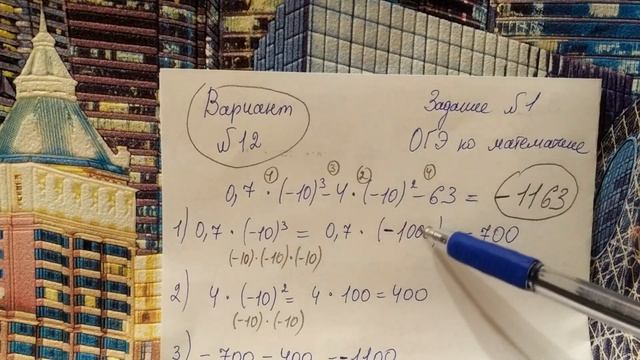 Вариант
№12
Задание №1
ОГЭ по математике
1 3 2 4
0,7 · (-10)³ - 4 · (-10)² - 63 = -1163
1) 0,7 · (-10)³ = 0,7 · (-100 ) = -700
(-10)·(-10)·(-10)
2) 4 · (-10)² = 4 · 100 = 400
(-10)·(-10)
3) -700 - 400 = -1100